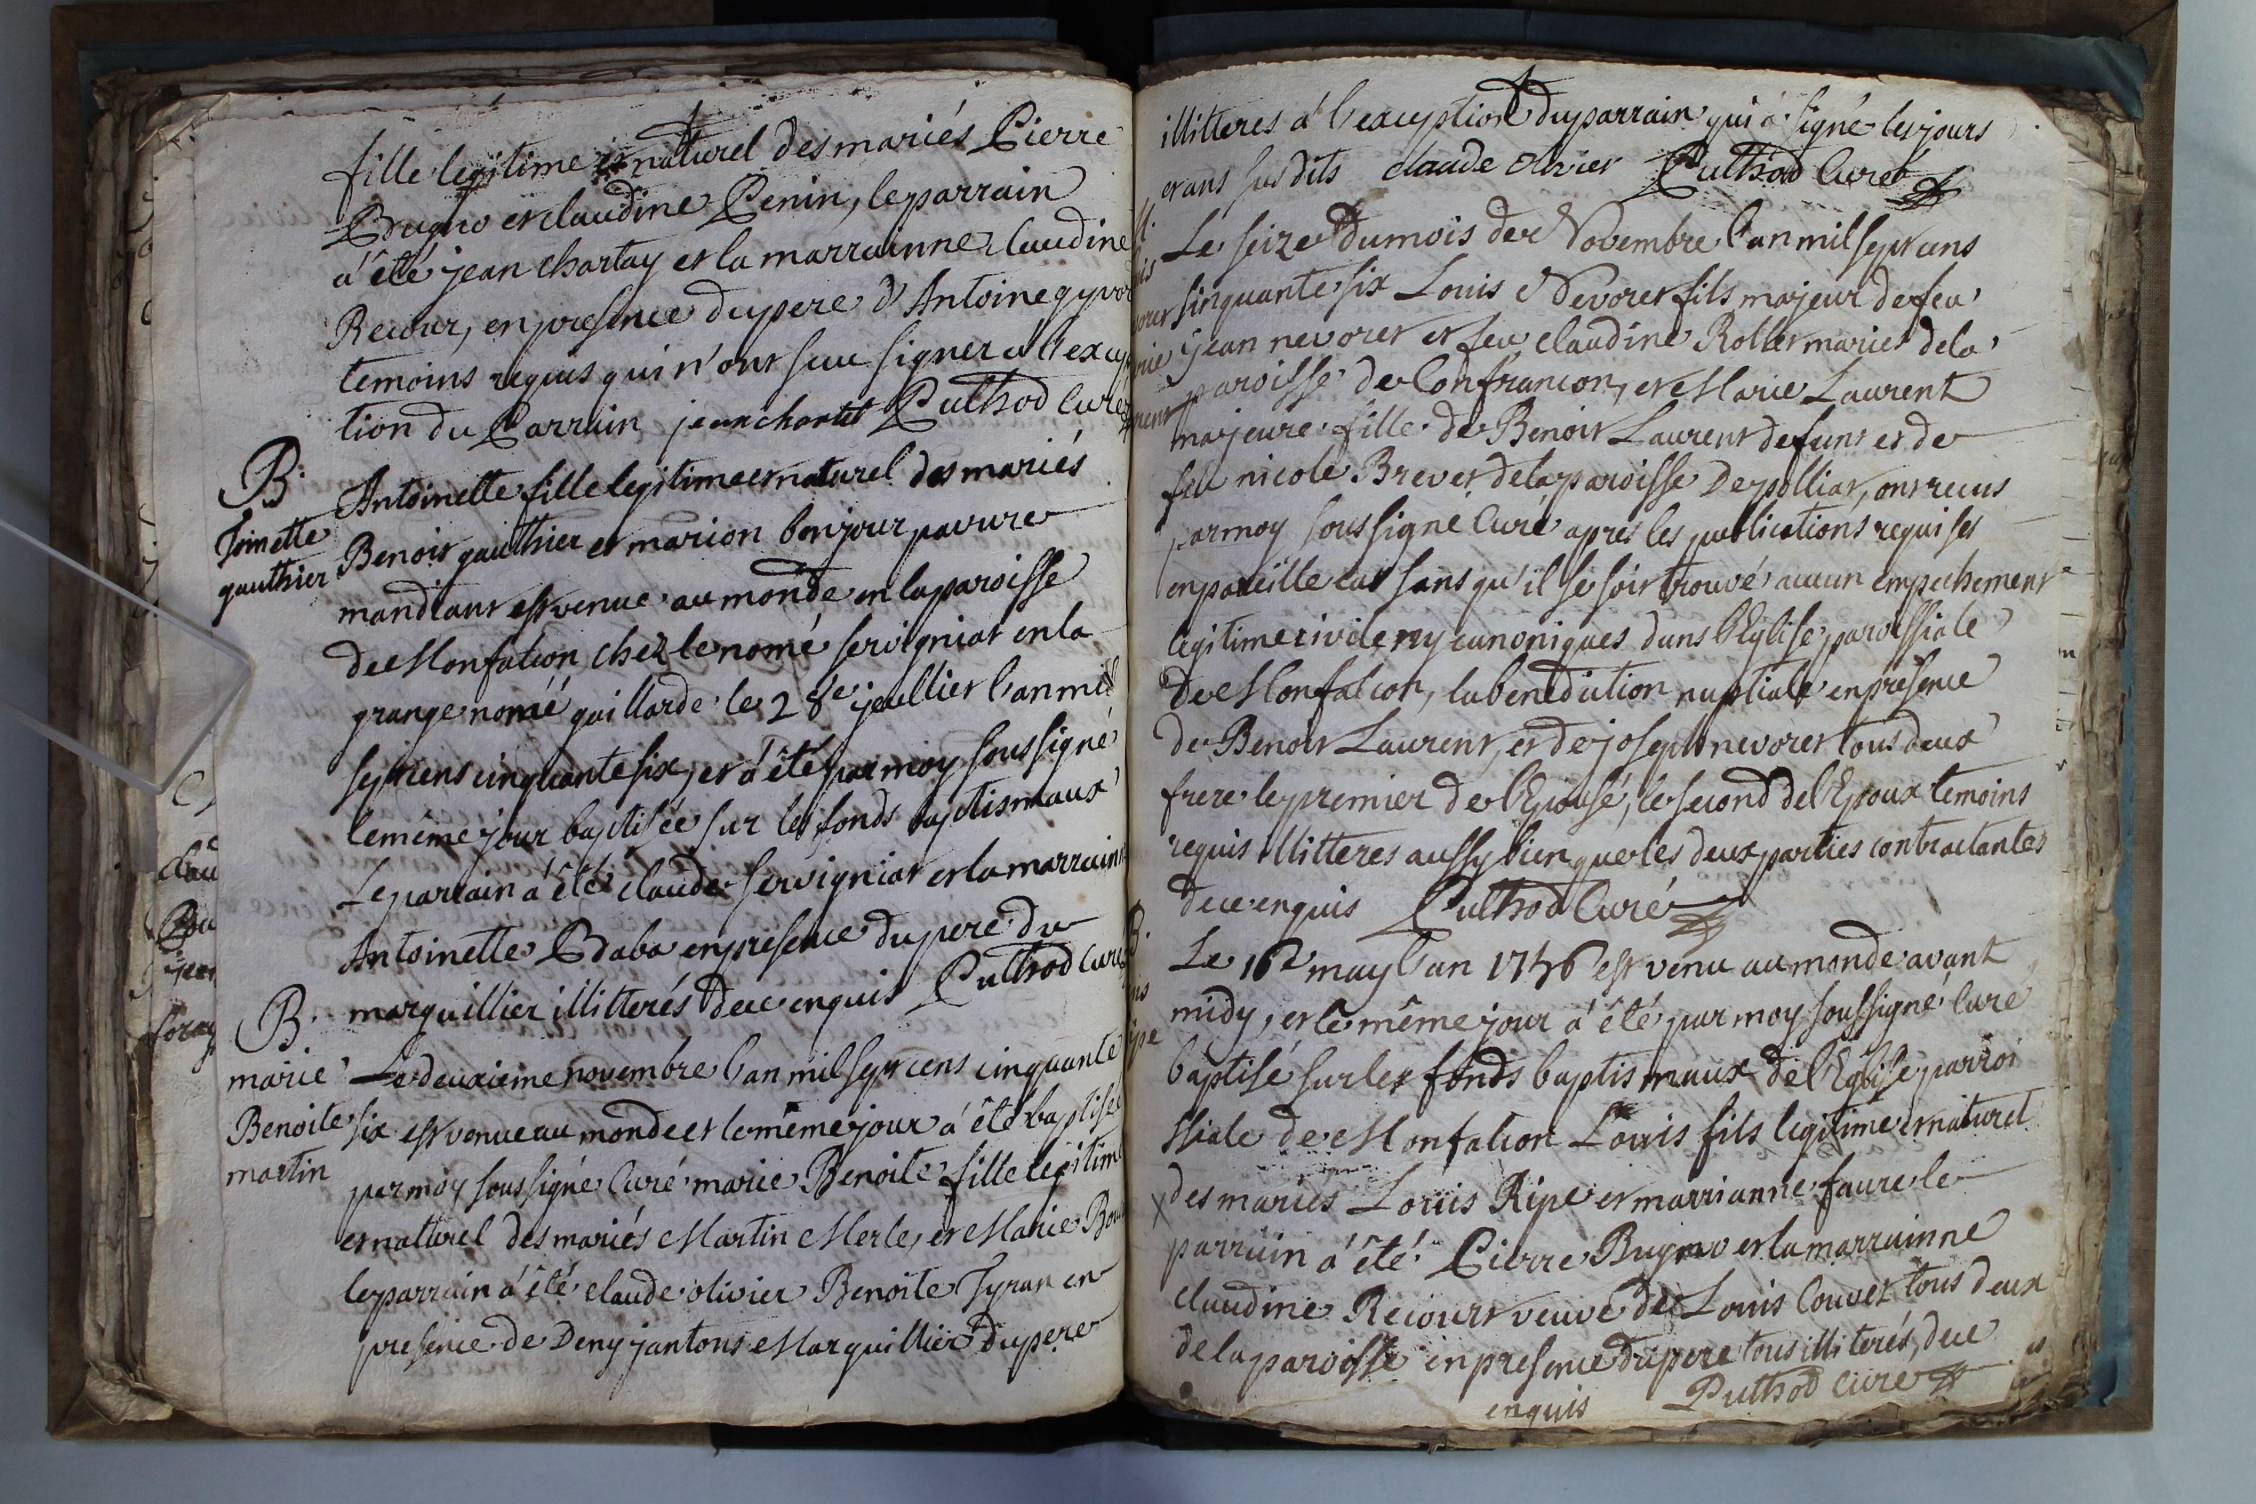 fille legitime et naturel des mariés Pierre
Bugno et claudine Penin, le parrain
a été jean chartay et la marrainne Claudine
Recour, en presence du pere d'Antoine gyvor
temoins requis qui n'ont scu signer a l'excep
tion du Parrain jean chartet Puthod Curé
B.
Toinette
gauthier
Antoinette fille legitime et naturel des mariés
Benoit gauthier et marion bonjour pauvre
mandiant est venue au monde en la paroisse
de Monfalcon chez le nomé servigniat en la
grange nomé guillarde le 28e jeullier l'an mil
sept cens cinquante six, et a été par moy soussigné
le même jour baptisée sur les fonds baptismaux
Le parrain a été claude servigniat et la marrainne
Antoinette Baba en presence du pere du
marguillier illitterés de ce enquis Puthod Curé
B.
marie
Benoite
martin
Le deuxieme novembre l'an mil sept cens cinquante
six est venue au monde et le même jour a été baptisée
par moy soussigné Curé marie Benoite fille legitime
et naturel des mariés Martin Merle, et Marie
le parrain a été claude olivier Benoite Tyran en
presence de Deny jantons Marguillier du pere
illitteres a l'exception du parrain qui a signé les jours
et ans susdits claude olivier Puthod Curé
Le seize du mois de Novembre l'an mil sept cens
sinquante six Louis Nevoret fils majeur de feu
jean nevoret et feu claudine Rollet mariés de la
paroisse de Confrancon, et Marie Laurent
majeure fille de Benoit Laurent defunt et de
feu nicole Brevet de la paroisse De polliat, ont recus
par moy soussigné Curé apres les publications requises
en pareille cas sans qu'il se soit trouvé aucun empechement
legitime civile ny canoniques dans l'Eglise paroissiale
de Monfalcon, la benediction nuptiale en presence
de Benoit Laurent, et de joseph nevoret tous deux
frere le premier de l'Epousé, le second de l'Epoux temoins
requis illitteres aussy bien que les deux parties contractantes
de ce enquis Puthod Curé
Le 16e may l'an 1756 est venu au monde avant
midy, et le même jour a été par moy soussigné Curé
baptisé sur les fonds baptismaux de l'Eglise parroi
ssiale de Monfalcon Louis fils legitime et naturel
des mariés Louis Ripe et marrianne faure le
parrain a été Pierre Bugno et la marrainne
claudine Recourt veuve de Louis Couvet tous deux
de la paroisse en presence du pere tous illiterés, de ce
enquis Puthod Curé